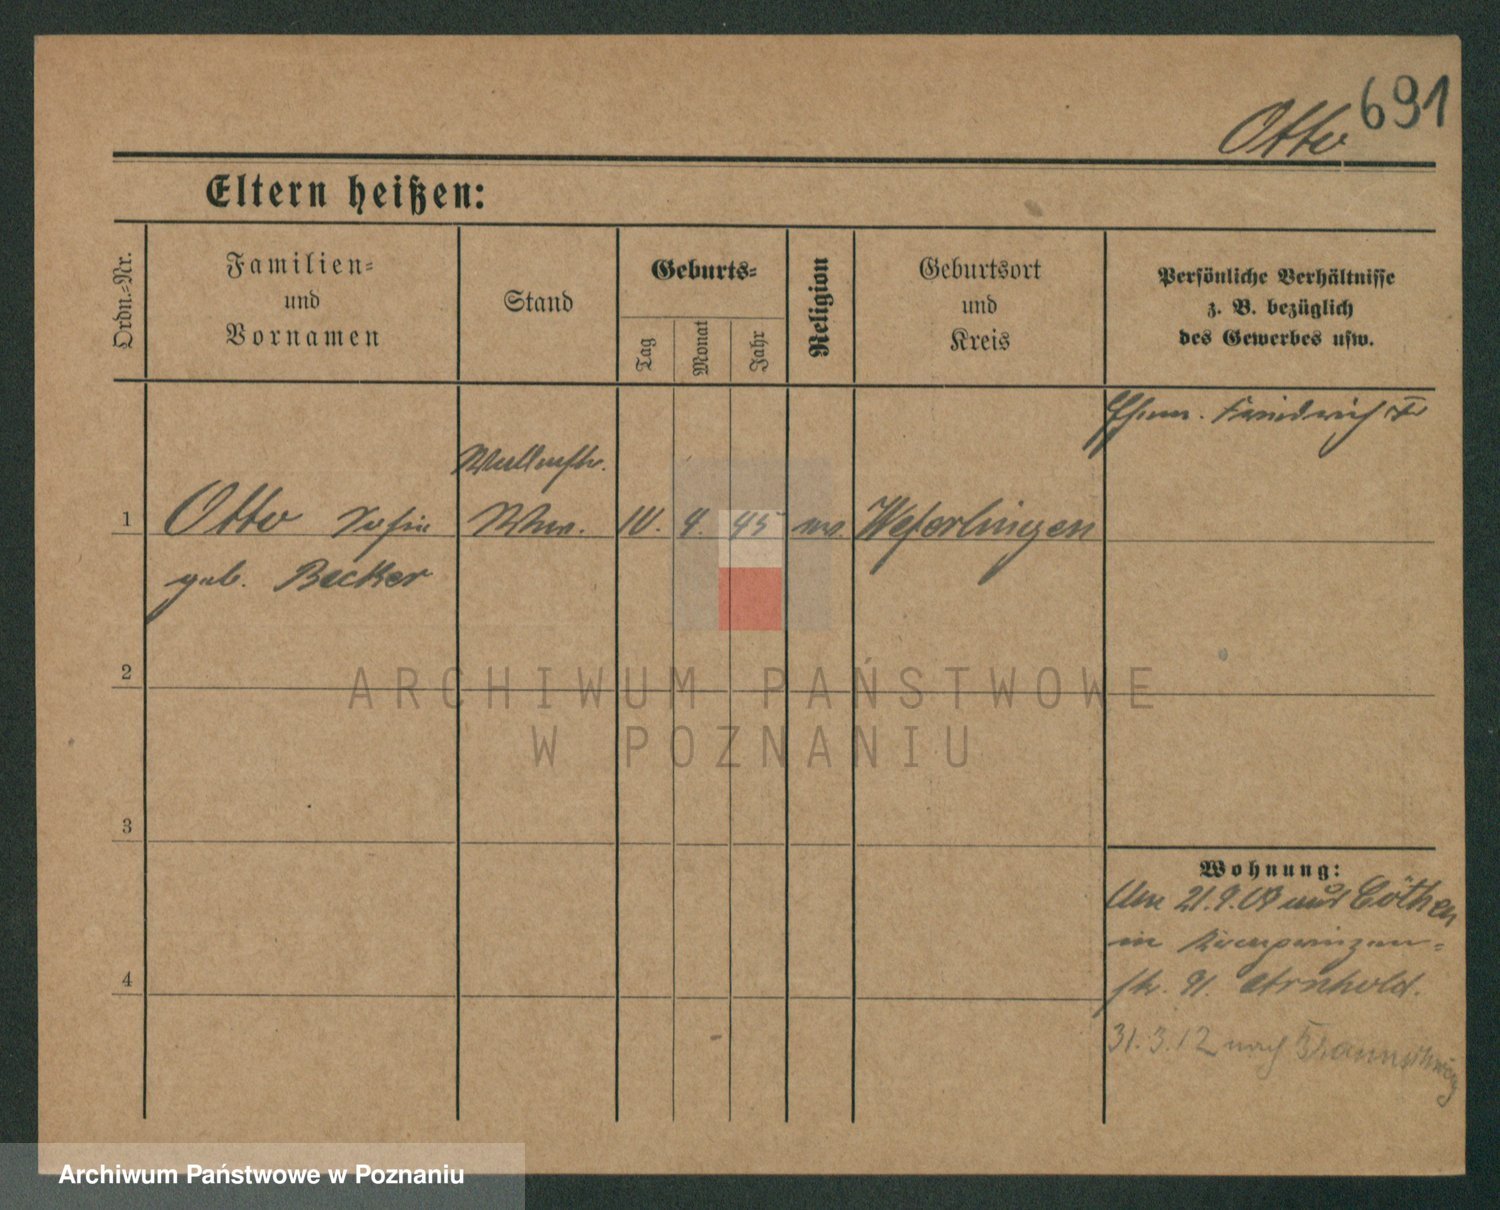 691
Otto
Eltern heißen:
Ordn.-Nr.
Familien-
und
Vornamen
Stand
Geburts-
Tag
Monat
Jahr
Religion
Geburtsort
und
Kreis
Persönliche Verhältnisse
z. B. bezüglich
des Gewerbes usw.
Ehem. Friedrich
1
Otto Sofie
geb. Becker
Ww.
10. 9. 45
ev.
Weferlingen
2
3
4
Wohnung:
Am 21.9.09 aus Cöthen
in Kronprinzen-
str. 91. Arnhold.
31.3.12 nach Braunschweig
ARCHIWUM PAŃSTWOWE
W POZNANIU
Archiwum Państwowe w Poznaniu